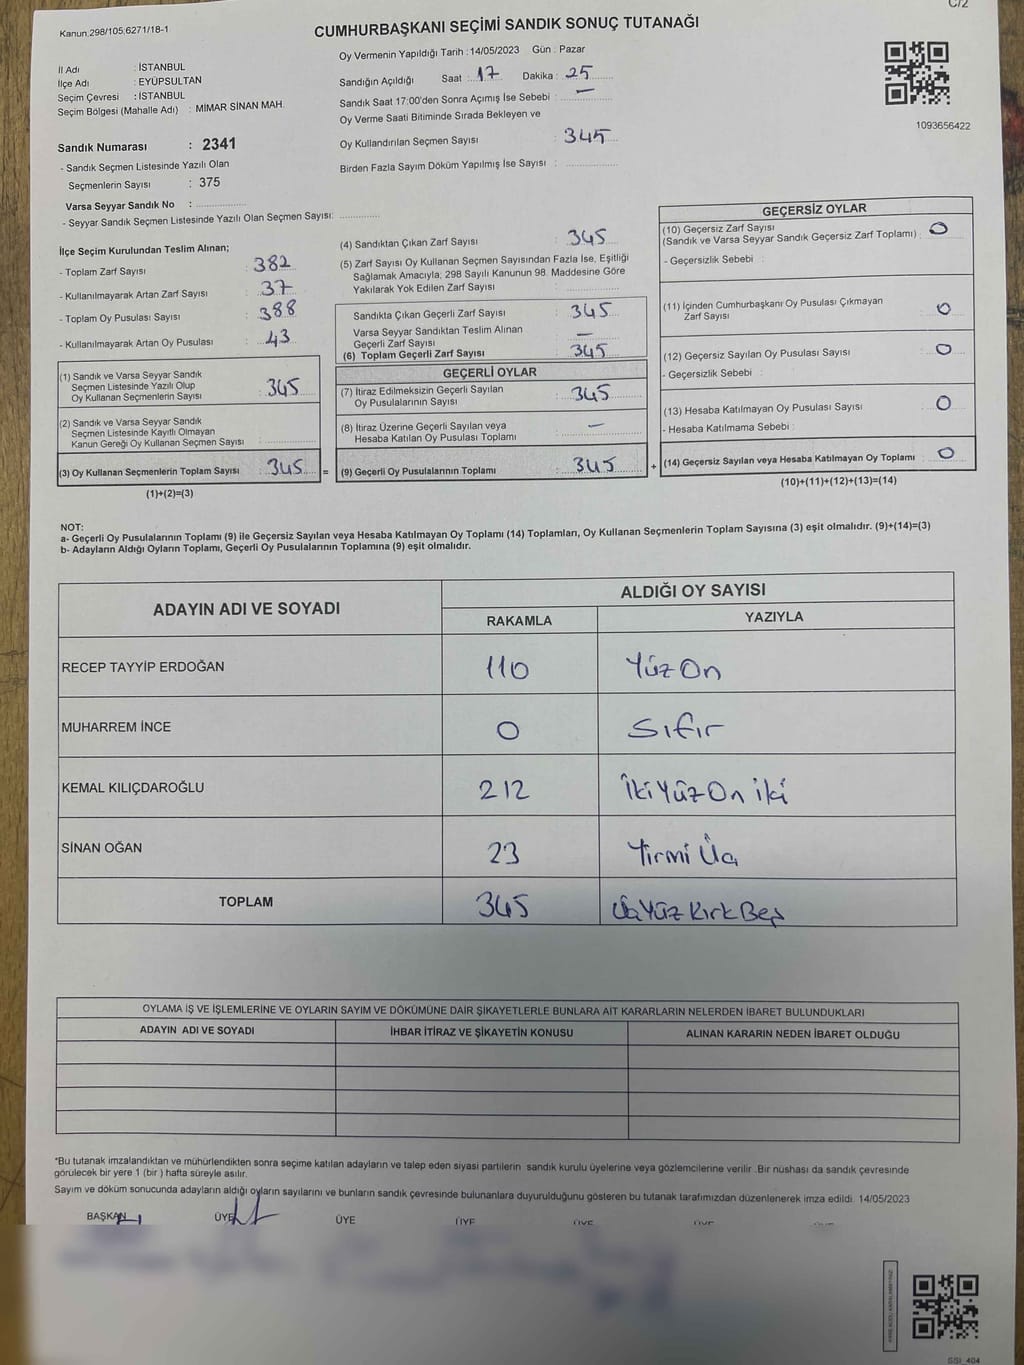 C/2
Kanun.298/105,6271/18-1
CUMHURBAŞKANI SEÇİMİ SANDIK SONUÇ TUTANAĞI
İl Adı : İSTANBUL
İlçe Adı : EYÜPSULTAN
Seçim Çevresi : İSTANBUL
Seçim Bölgesi (Mahalle Adı) : MİMAR SİNAN MAH.
Sandık Numarası : 2341
- Sandık Seçmen Listesinde Yazılı Olan
Seçmenlerin Sayısı : 375
Varsa Seyyar Sandık No :
- Seyyar Sandık Seçmen Listesinde Yazılı Olan Seçmen Sayısı:
Oy Vermenin Yapıldığı Tarih : 14/05/2023 Gün : Pazar
Sandığın Açıldığı Saat : 17 Dakika : 25
Sandık Saat 17:00'den Sonra Açımış İse Sebebi : —
Oy Verme Saati Bitiminde Sırada Bekleyen ve
Oy Kullandırılan Seçmen Sayısı : 345
Birden Fazla Sayım Döküm Yapılmış İse Sayısı :
1093656422
İlçe Seçim Kurulundan Teslim Alınan;
- Toplam Zarf Sayısı : 382
- Kullanılmayarak Artan Zarf Sayısı : 37
- Toplam Oy Pusulası Sayısı : 388
- Kullanılmayarak Artan Oy Pusulası : 43
(1) Sandık ve Varsa Seyyar Sandık
Seçmen Listesinde Yazılı Olup
Oy Kullanan Seçmenlerin Sayısı : 345
(2) Sandık ve Varsa Seyyar Sandık
Seçmen Listesinde Kayıtlı Olmayan
Kanun Gereği Oy Kullanan Seçmen Sayısı :
(3) Oy Kullanan Seçmenlerin Toplam Sayısı : 345
(1)+(2)=(3)
=
(4) Sandıktan Çıkan Zarf Sayısı : 345
(5) Zarf Sayısı Oy Kullanan Seçmen Sayısından Fazla İse, Eşitliği
Sağlamak Amacıyla; 298 Sayılı Kanunun 98. Maddesine Göre
Yakılarak Yok Edilen Zarf Sayısı :
Sandıkta Çıkan Geçerli Zarf Sayısı : 345
Varsa Seyyar Sandıktan Teslim Alınan
Geçerli Zarf Sayısı : —
(6) Toplam Geçerli Zarf Sayısı : 345
GEÇERLİ OYLAR
(7) İtiraz Edilmeksizin Geçerli Sayılan
Oy Pusulalarının Sayısı : 345
(8) İtiraz Üzerine Geçerli Sayılan veya
Hesaba Katılan Oy Pusulası Toplamı : —
(9) Geçerli Oy Pusulalarının Toplamı : 345
+
GEÇERSİZ OYLAR
(10) Geçersiz Zarf Sayısı
(Sandık ve Varsa Seyyar Sandık Geçersiz Zarf Toplamı) : 0
- Geçersizlik Sebebi :
(11) İçinden Cumhurbaşkanı Oy Pusulası Çıkmayan
Zarf Sayısı : 0
(12) Geçersiz Sayılan Oy Pusulası Sayısı : 0
- Geçersizlik Sebebi :
(13) Hesaba Katılmayan Oy Pusulası Sayısı : 0
- Hesaba Katılmama Sebebi :
(14) Geçersiz Sayılan veya Hesaba Katılmayan Oy Toplamı : 0
(10)+(11)+(12)+(13)=(14)
NOT:
a- Geçerli Oy Pusulalarının Toplamı (9) ile Geçersiz Sayılan veya Hesaba Katılmayan Oy Toplamı (14) Toplamları, Oy Kullanan Seçmenlerin Toplam Sayısına (3) eşit olmalıdır. (9)+(14)=(3)
b- Adayların Aldığı Oyların Toplamı, Geçerli Oy Pusulalarının Toplamına (9) eşit olmalıdır.
ADAYIN ADI VE SOYADI
ALDIĞI OY SAYISI
RAKAMLA YAZIYLA
RECEP TAYYİP ERDOĞAN 110 Yüz On
MUHARREM İNCE 0 Sıfır
KEMAL KILIÇDAROĞLU 212 İki Yüz On iki
SİNAN OĞAN 23 Yirmi Üç
TOPLAM 345 Üç Yüz Kırk Beş
OYLAMA İŞ VE İŞLEMLERİNE VE OYLARIN SAYIM VE DÖKÜMÜNE DAİR ŞİKAYETLERLE BUNLARA AİT KARARLARIN NELERDEN İBARET BULUNDUKLARI
ADAYIN ADI VE SOYADI İHBAR İTİRAZ VE ŞİKAYETİN KONUSU ALINAN KARARIN NEDEN İBARET OLDUĞU
*Bu tutanak imzalandıktan ve mühürlendikten sonra seçime katılan adayların ve talep eden siyasi partilerin sandık kurulu üyelerine veya gözlemcilerine verilir .Bir nüshası da sandık çevresinde
görülecek bir yere 1 (bir ) hafta süreyle asılır.
Sayım ve döküm sonucunda adayların aldığı oyların sayılarını ve bunların sandık çevresinde bulunanlara duyurulduğunu gösteren bu tutanak tarafımızdan düzenlenerek imza edildi. 14/05/2023
BAŞKAN ÜYE ÜYE ÜYE ÜYE ÜYE ÜYE